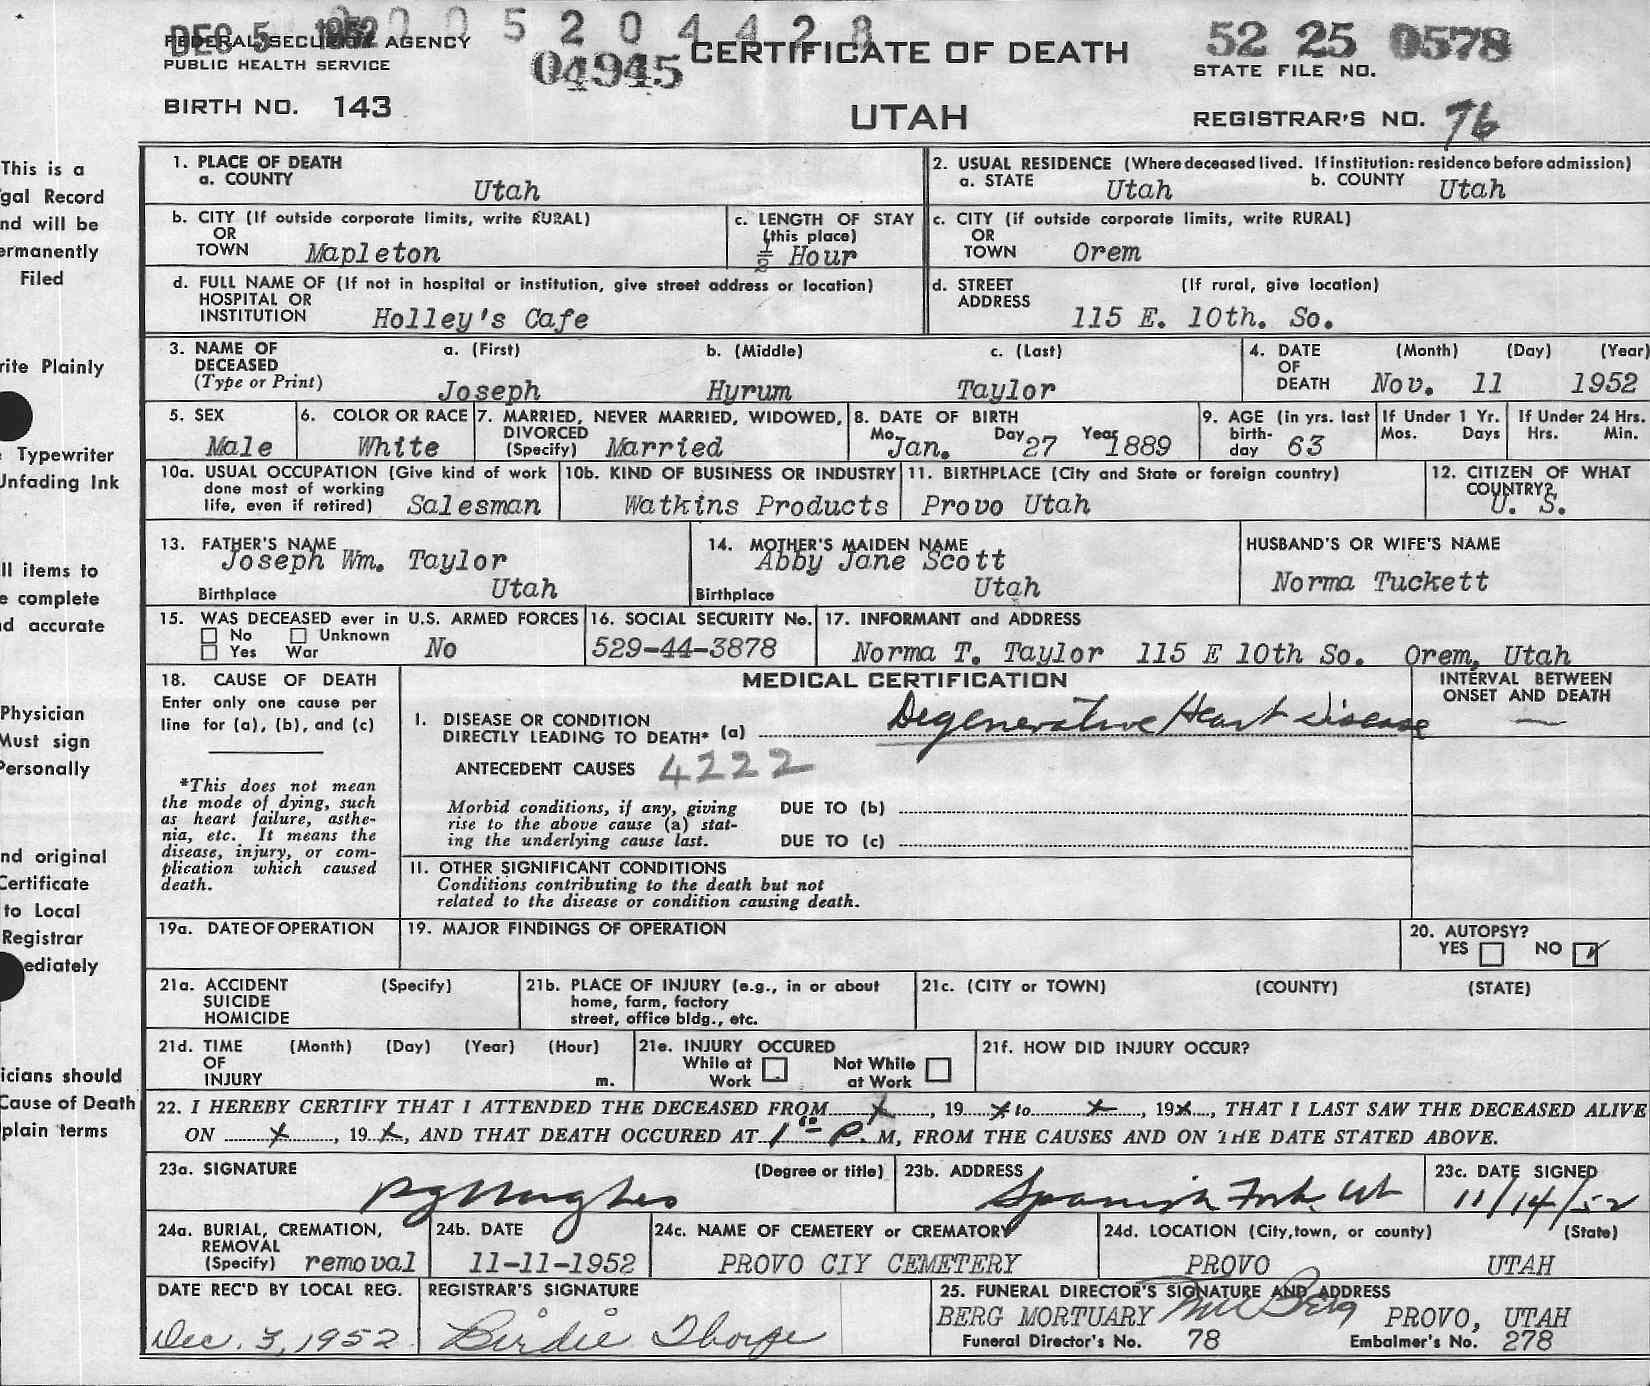 DEC 5 1952 5 2 0 4 4 2 8
FEDERAL SECURITY AGENCY
PUBLIC HEALTH SERVICE
04945
CERTIFICATE OF DEATH
52 25 0578
STATE FILE NO.
BIRTH NO. 143
UTAH
REGISTRAR'S NO. 76
This is a
gal Record
nd will be
ermanently
Filed
rite Plainly
Typewriter
Unfading Ink
ll items to
e complete
nd accurate
Physician
Must sign
Personally
nd original
Certificate
to Local
Registrar
ediately
icians should
Cause of Death
plain terms
1. PLACE OF DEATH
a. COUNTY
Utah
2. USUAL RESIDENCE (Where deceased lived. If institution: residence before admission)
a. STATE Utah b. COUNTY Utah
b. CITY (If outside corporate limits, write RURAL)
OR
TOWN Mapleton
c. LENGTH OF STAY
(this place)
1/2 Hour
c. CITY (if outside corporate limits, write RURAL)
OR
TOWN Orem
d. FULL NAME OF (If not in hospital or institution, give street address or location)
HOSPITAL OR
INSTITUTION Holley's Cafe
d. STREET (If rural, give location)
ADDRESS
115 E. 10th. So.
3. NAME OF
DECEASED
(Type or Print)
a. (First) b. (Middle) c. (Last)
Joseph Hyrum Taylor
4. DATE (Month) (Day) (Year)
OF
DEATH Nov. 11 1952
5. SEX
Male
6. COLOR OR RACE
White
7. MARRIED, NEVER MARRIED, WIDOWED,
DIVORCED
(Specify) Married
8. DATE OF BIRTH
Mo. Jan. Day 27 Year 1889
9. AGE (in yrs. last
birth-
day 63
If Under 1 Yr.
Mos. Days
If Under 24 Hrs.
Hrs. Min.
10a. USUAL OCCUPATION (Give kind of work
done most of working
life, even if retired) Salesman
10b. KIND OF BUSINESS OR INDUSTRY
Watkins Products
11. BIRTHPLACE (City and State or foreign country)
Provo Utah
12. CITIZEN OF WHAT
COUNTRY?
U. S.
13. FATHER'S NAME
Joseph Wm. Taylor
Birthplace Utah
14. MOTHER'S MAIDEN NAME
Abby Jane Scott
Birthplace Utah
HUSBAND'S OR WIFE'S NAME
Norma Tuckett
15. WAS DECEASED ever in U.S. ARMED FORCES
No Unknown
Yes War No
16. SOCIAL SECURITY No.
529-44-3878
17. INFORMANT and ADDRESS
Norma T. Taylor 115 E 10th So. Orem, Utah
18. CAUSE OF DEATH
Enter only one cause per
line for (a), (b), and (c)
*This does not mean
the mode of dying, such
as heart failure, asthe-
nia, etc. It means the
disease, injury, or com-
plication which caused
death.
MEDICAL CERTIFICATION
INTERVAL BETWEEN
ONSET AND DEATH
I. DISEASE OR CONDITION
DIRECTLY LEADING TO DEATH* (a) Degenerative Heart disease
—
ANTECEDENT CAUSES 4222
Morbid conditions, if any, giving
rise to the above cause (a) stat-
ing the underlying cause last.
DUE TO (b)
DUE TO (c)
II. OTHER SIGNIFICANT CONDITIONS
Conditions contributing to the death but not
related to the disease or condition causing death.
19a. DATE OF OPERATION
19. MAJOR FINDINGS OF OPERATION
20. AUTOPSY?
YES NO ✓
21a. ACCIDENT (Specify)
SUICIDE
HOMICIDE
21b. PLACE OF INJURY (e.g., in or about
home, farm, factory
street, office bldg., etc.
21c. (CITY or TOWN) (COUNTY) (STATE)
21d. TIME (Month) (Day) (Year) (Hour)
OF
INJURY m.
21e. INJURY OCCURED
While at Not While
Work at Work
21f. HOW DID INJURY OCCUR?
22. I HEREBY CERTIFY THAT I ATTENDED THE DECEASED FROM x, 19 x to x, 19 x, THAT I LAST SAW THE DECEASED ALIVE
ON x, 19 x, AND THAT DEATH OCCURED AT 1 10 P. M, FROM THE CAUSES AND ON THE DATE STATED ABOVE.
23a. SIGNATURE (Degree or title)
Hughes
23b. ADDRESS
Spanish Fork, Ut
23c. DATE SIGNED
11/14/52
24a. BURIAL, CREMATION,
REMOVAL
(Specify) removal
24b. DATE
11-11-1952
24c. NAME OF CEMETERY or CREMATORY
PROVO CIY CEMETERY
24d. LOCATION (City, town, or county) (State)
PROVO UTAH
DATE REC'D BY LOCAL REG.
Dec. 3, 1952
REGISTRAR'S SIGNATURE
Birdie Thorpe
25. FUNERAL DIRECTOR'S SIGNATURE AND ADDRESS
BERG MORTUARY Berg PROVO, UTAH
Funeral Director's No. 78 Embalmer's No. 278